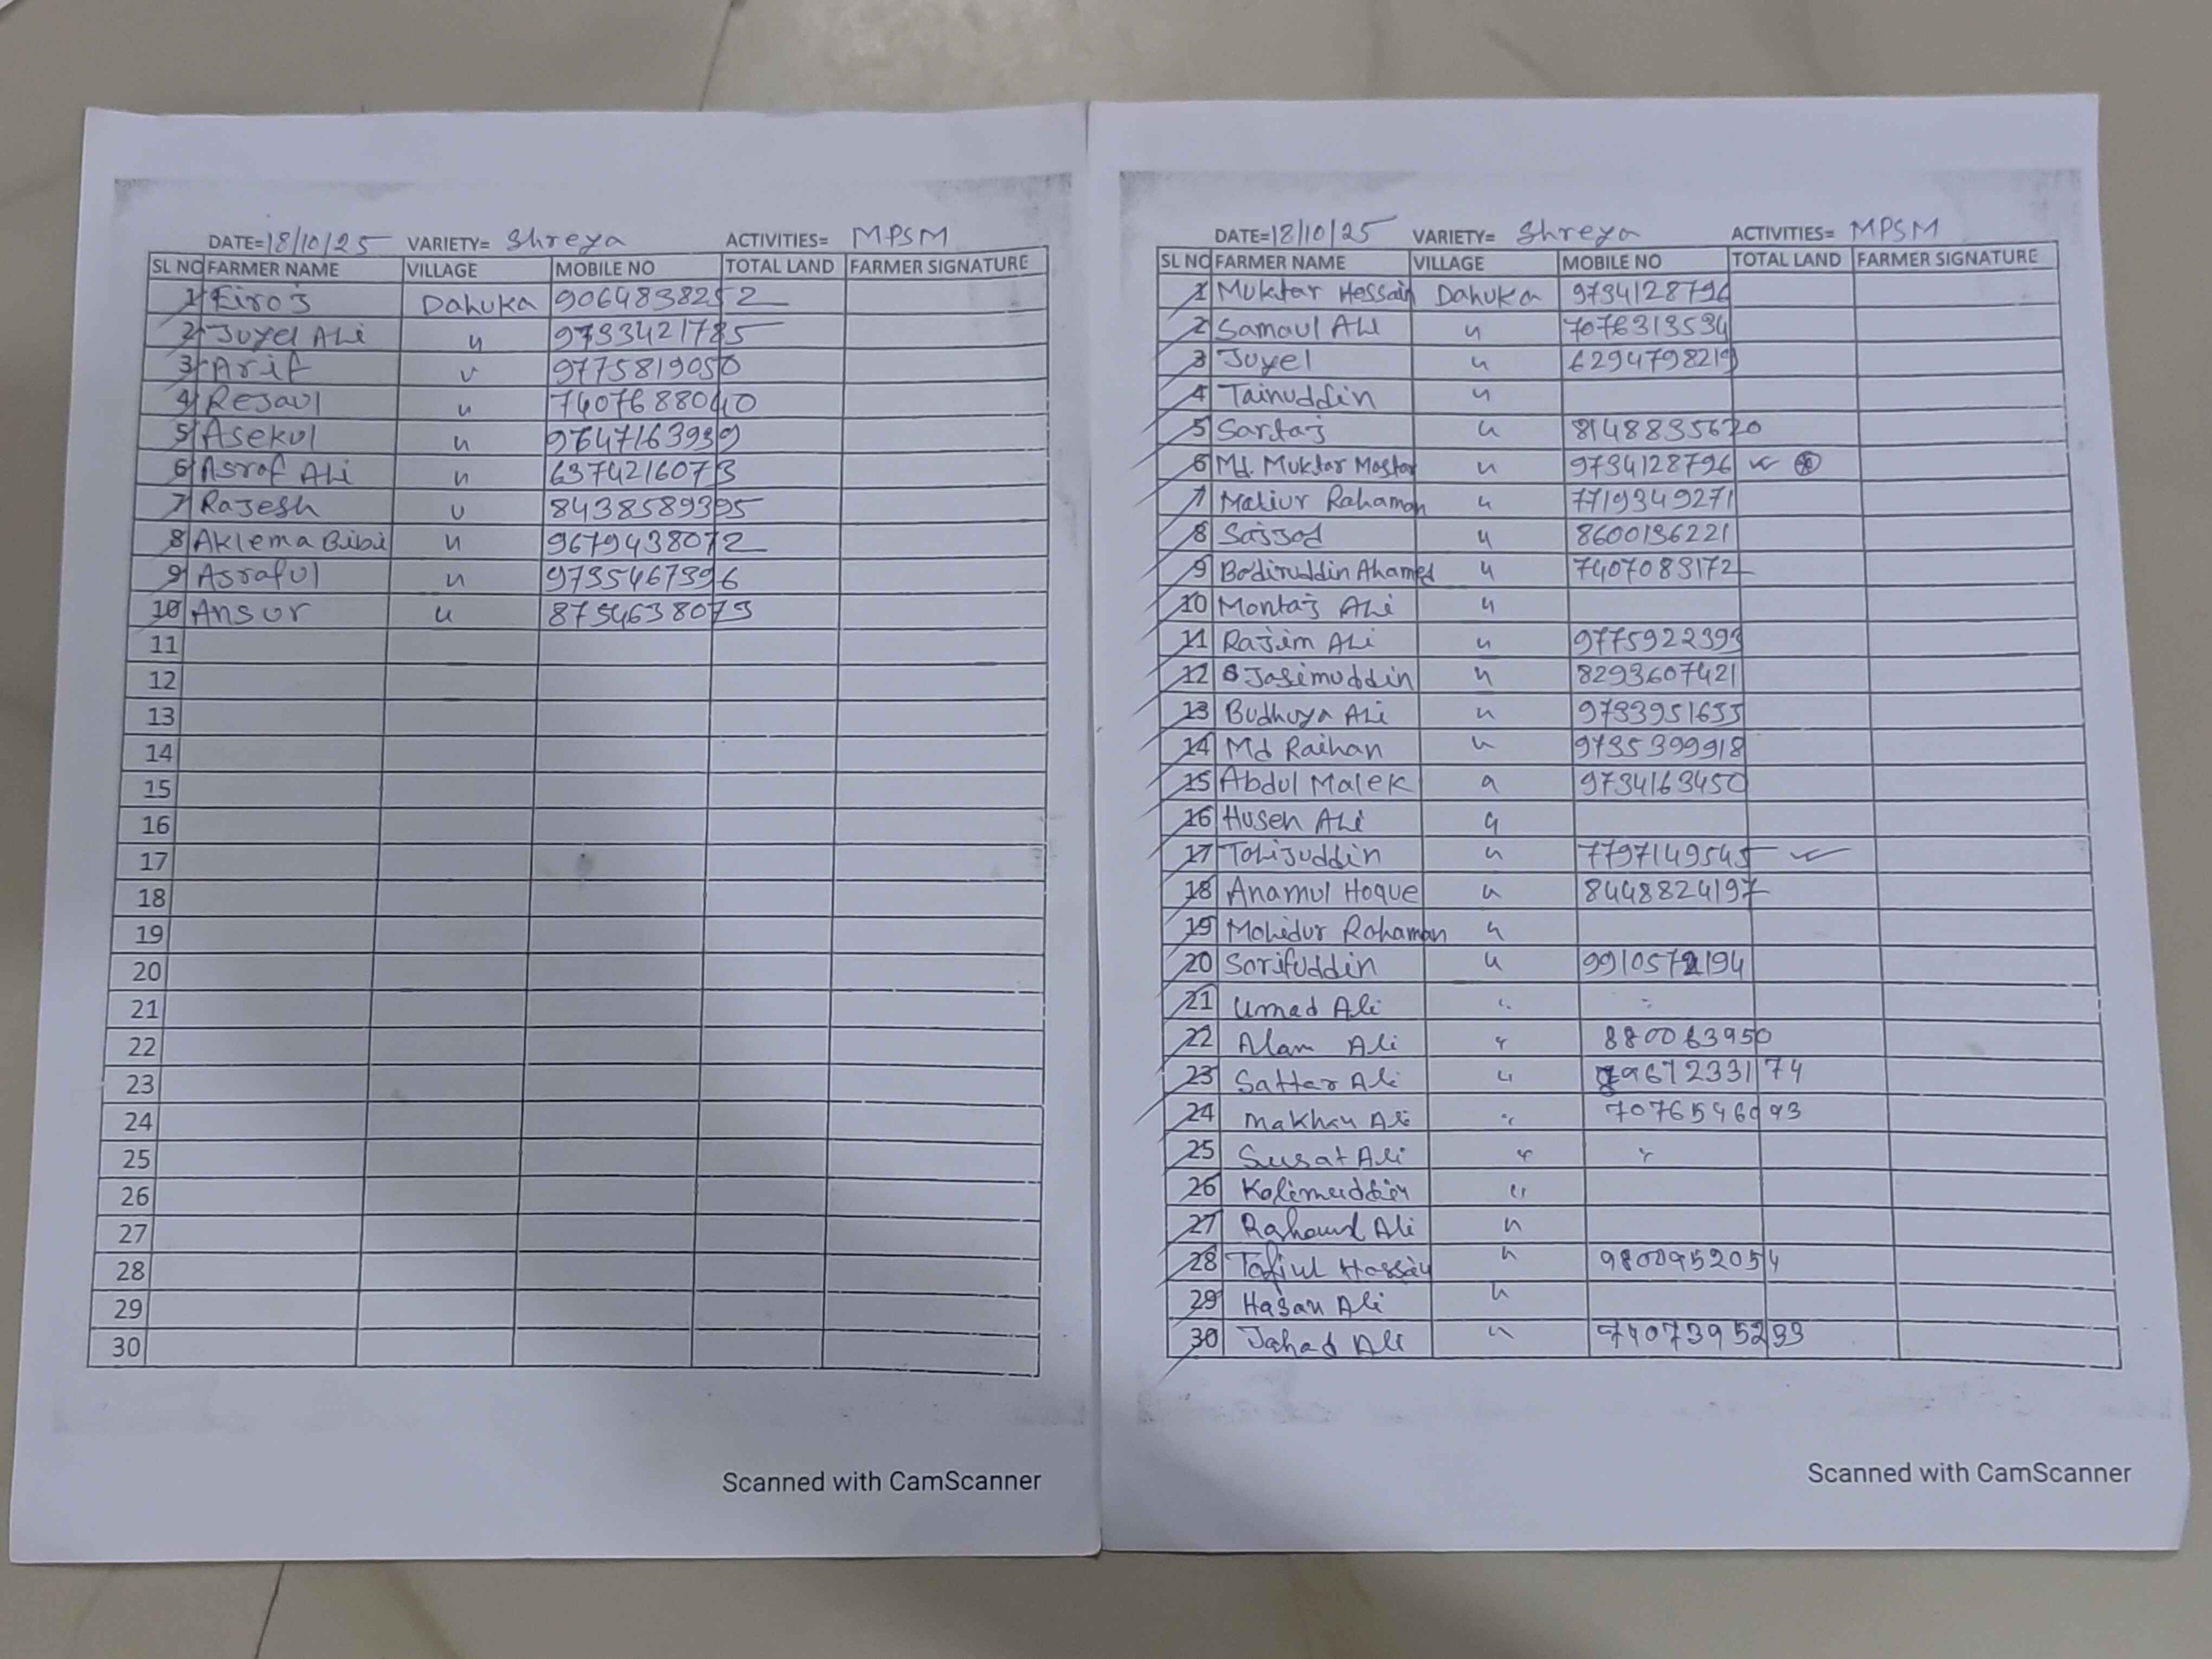 DATE=18/10/25 VARIETY= Shreya ACTIVITIES= MPSM
SL NO FARMER NAME VILLAGE MOBILE NO TOTAL LAND FARMER SIGNATURE
1 Firoj Dahuka 9064838252
2 Juyel Ali " 9733421785
3 Arif " 9775819050
4 Rejaul " 7407688040
5 Asekul " 9647163939
6 Asraf Ali " 6374216073
7 Rajesh " 8438589395
8 Aklema Bibi " 9679438072
9 Asraful " 9735467396
10 Ansur " 8754638073
11
12
13
14
15
16
17
18
19
20
21
22
23
24
25
26
27
28
29
30
Scanned with CamScanner
DATE=18/10/25 VARIETY= Shreya ACTIVITIES= MPSM
SL NO FARMER NAME VILLAGE MOBILE NO TOTAL LAND FARMER SIGNATURE
1 Muktar Hessain Dahuka 9734128796
2 Samaul Ali " 7076313534
3 Juyel " 6294798219
4 Tainuddin "
5 Sartaj " 8148835670
6 Md. Muktar " 9734128796
7 Maliur Rahaman " 7719349271
8 Sajjad " 8600136221
9 Bodiruddin Ahamed " 7407083172
10 Montaj Ali "
11 Rajim Ali " 9775922393
12 Jasimuddin " 8293607421
13 Budhuya Ali " 9733951655
14 Md Raihan " 9735399918
15 Abdul Malek " 9734163450
16 Husen Ali "
17 Tolijuddin " 7797149545
18 Anamul Hoque " 8448824197
19 Mohidur Rahaman "
20 Sorifuddin " 9910572194
21 Umed Ali " "
22 Alam Ali " 880063950
23 Sattar Ali " 967233174
24 Makhan Ali " 7076546993
25 Susat Ali " "
26 Kolimuddin "
27 Ali "
28 Tofiul Hossain " 9800952054
29 Hasan Ali "
30 Jahad Ali " 7407395233
Scanned with CamScanner